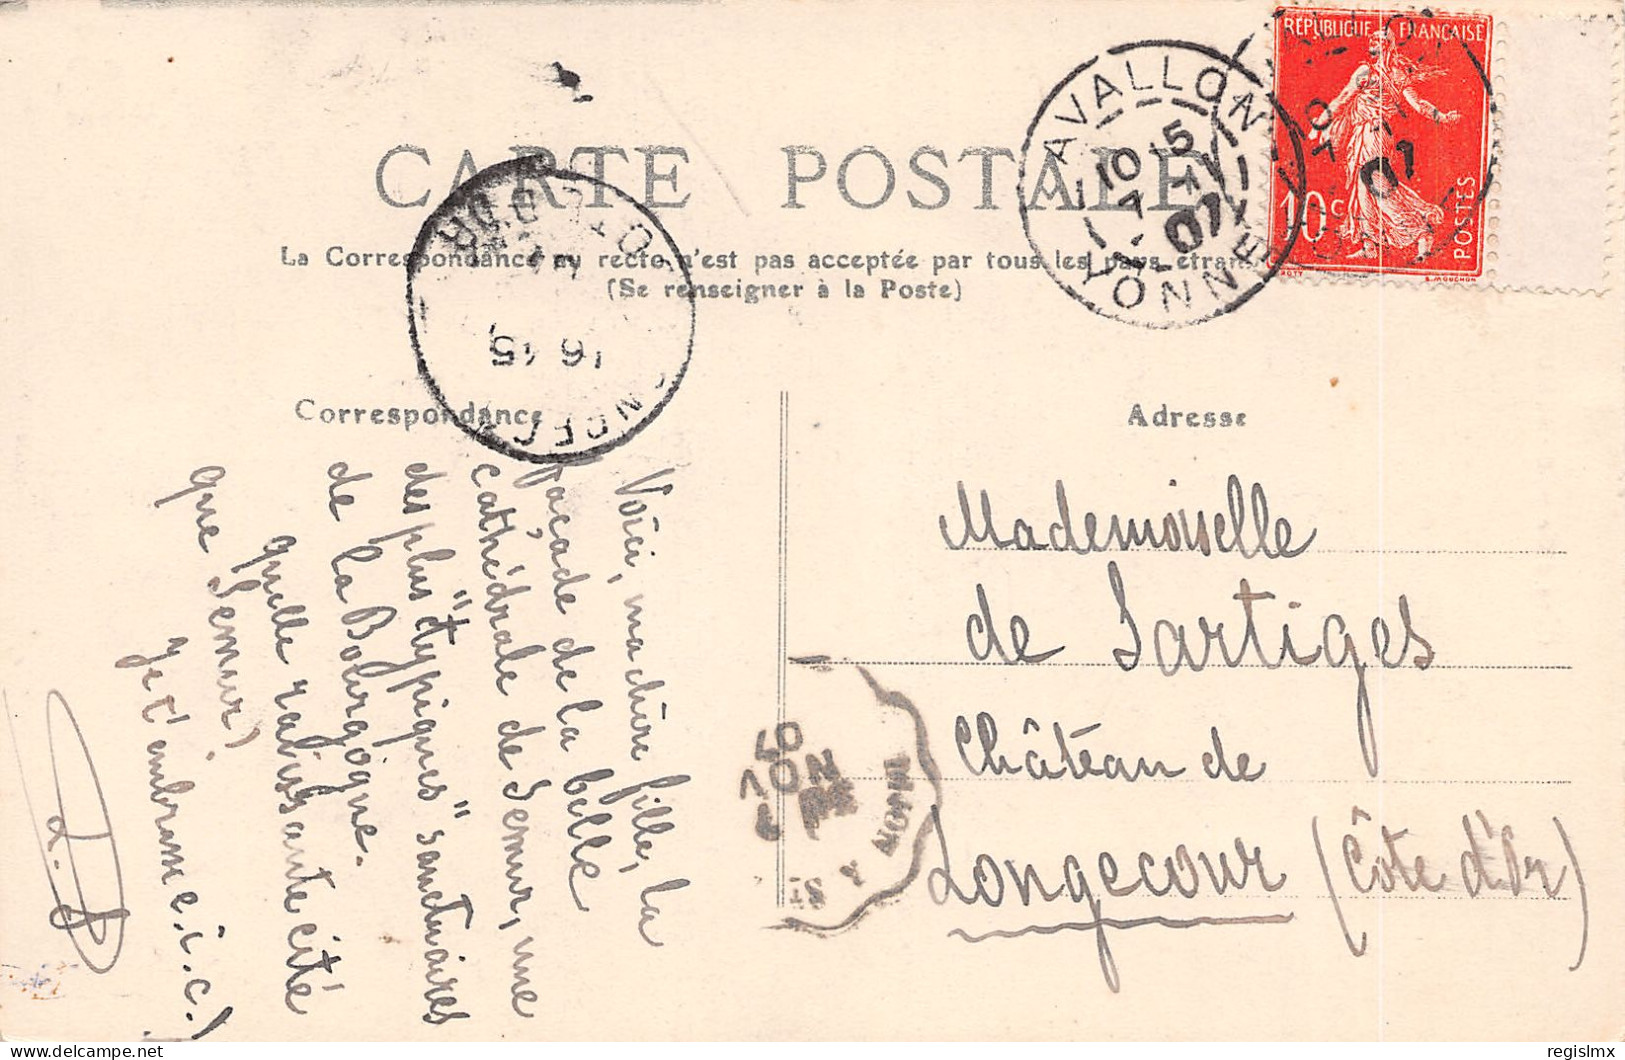 CARTE POSTALE
La Correspondance au recto n'est pas acceptée par tous les pays étran
(Se renseigner à la Poste)
RÉPUBLIQUE FRANÇAISE
10c
POSTES
AVALLON
10 15
7 XI
07
YONNE
CÔTE-D'OR
16 45
Correspondance
Voici, ma chère fille, la
façade de la belle
cathédrale de Semur, une
des plus "typiques" sanctuaires
de la Bourgogne.
quelle ravissante cité
que Semur!
Je t'embrasse.i.c.)
Adresse
Mademoiselle
de Sartiges
Château de
Longecour (Côte d'Or)
NOV
07
delcampe.net
regislmx